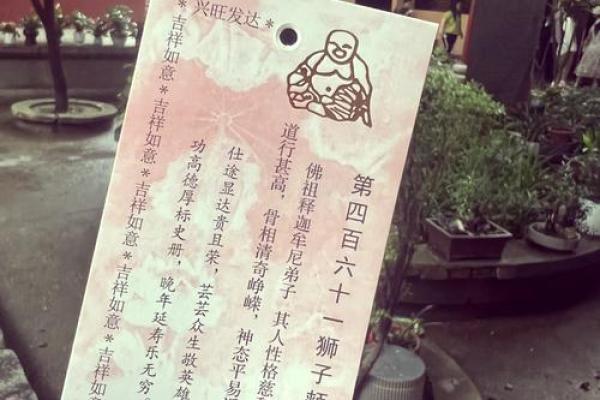 兴旺发达*
第四百六十一狮子
佛祖释迦牟尼弟子 其人性格慈
道行甚高，骨相清奇峥嵘，神态平易
仕途显达贵且荣，芸芸众生敬英雄
功高德厚标史册，晚年延寿乐无穷
*吉祥如意*吉祥如意*吉祥如意*吉祥如意*吉祥如